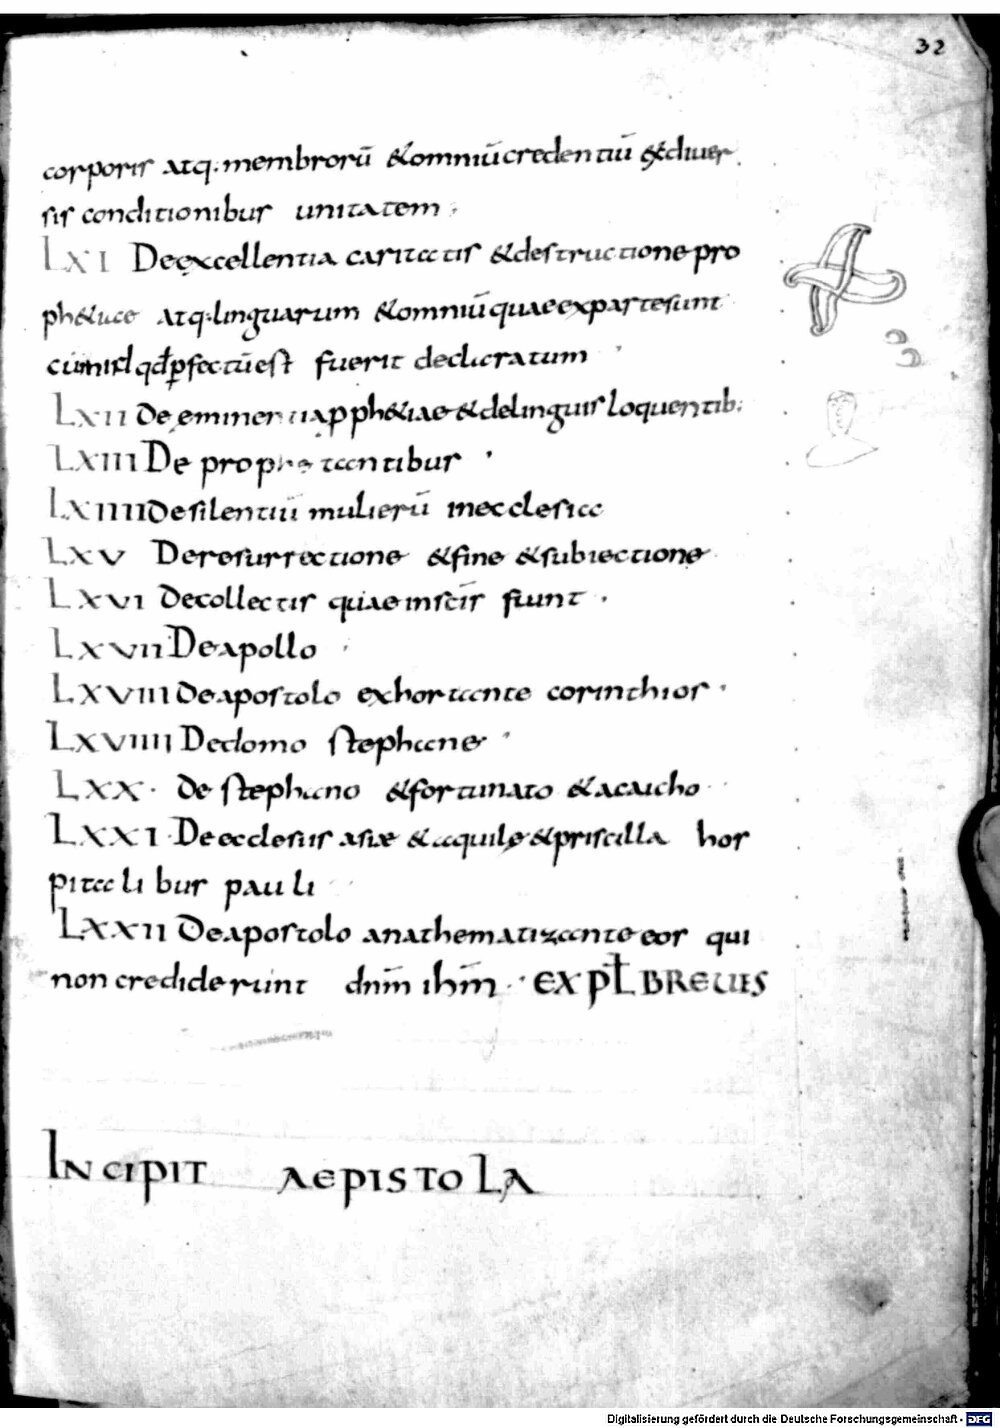 32
corporis atq: membrorū &omniū credentiū & ediuer
sis conditionibus unitatem
LXI De excellentia caritatis & destructione pro
ph&iae atq: linguarum & omniū quae ex parte sunt
cum id qđ ꝑfectū est fuerit declaratum
LXII De eminentia pph&iae & delinguis loquentib:
LXIII De prophetantibus
LXIIII De silentiū mulierū inecclesia
LXV De resurrectione & fine & subiectione
LXVI De collectis quae in sc̄is fiunt
LXVII De apollo
LXVIII De apostolo exhortante corinthios
LXVIIII De domo stephane
LXX De stephano & fortunato & acaicho
LXXI De ecclesiis asiae & aquile & priscilla hos
pitalibus pauli
LXXII De apostolo anathematizante eos qui
non crediderunt dnm̄ ihm̄ EXPL̄ BREUIS
INCIPIT AEPISTOLA
Digitalisierung gefördert durch die Deutsche Forschungsgemeinschaft - DFG